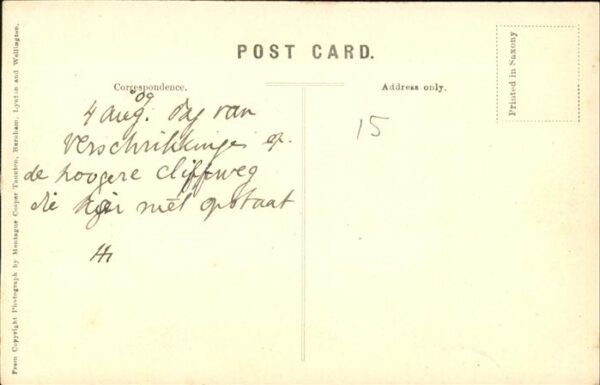 POST CARD.
Correspondence.
Address only.
Printed in Saxony
From Copyright Photograph by Montague Cooper Taunton, Burnham, Lynton and Wellington.
09
4 Aug. dag van
verschrikkingen op
de hoogere cliffweg
die hier niet opstaat
15